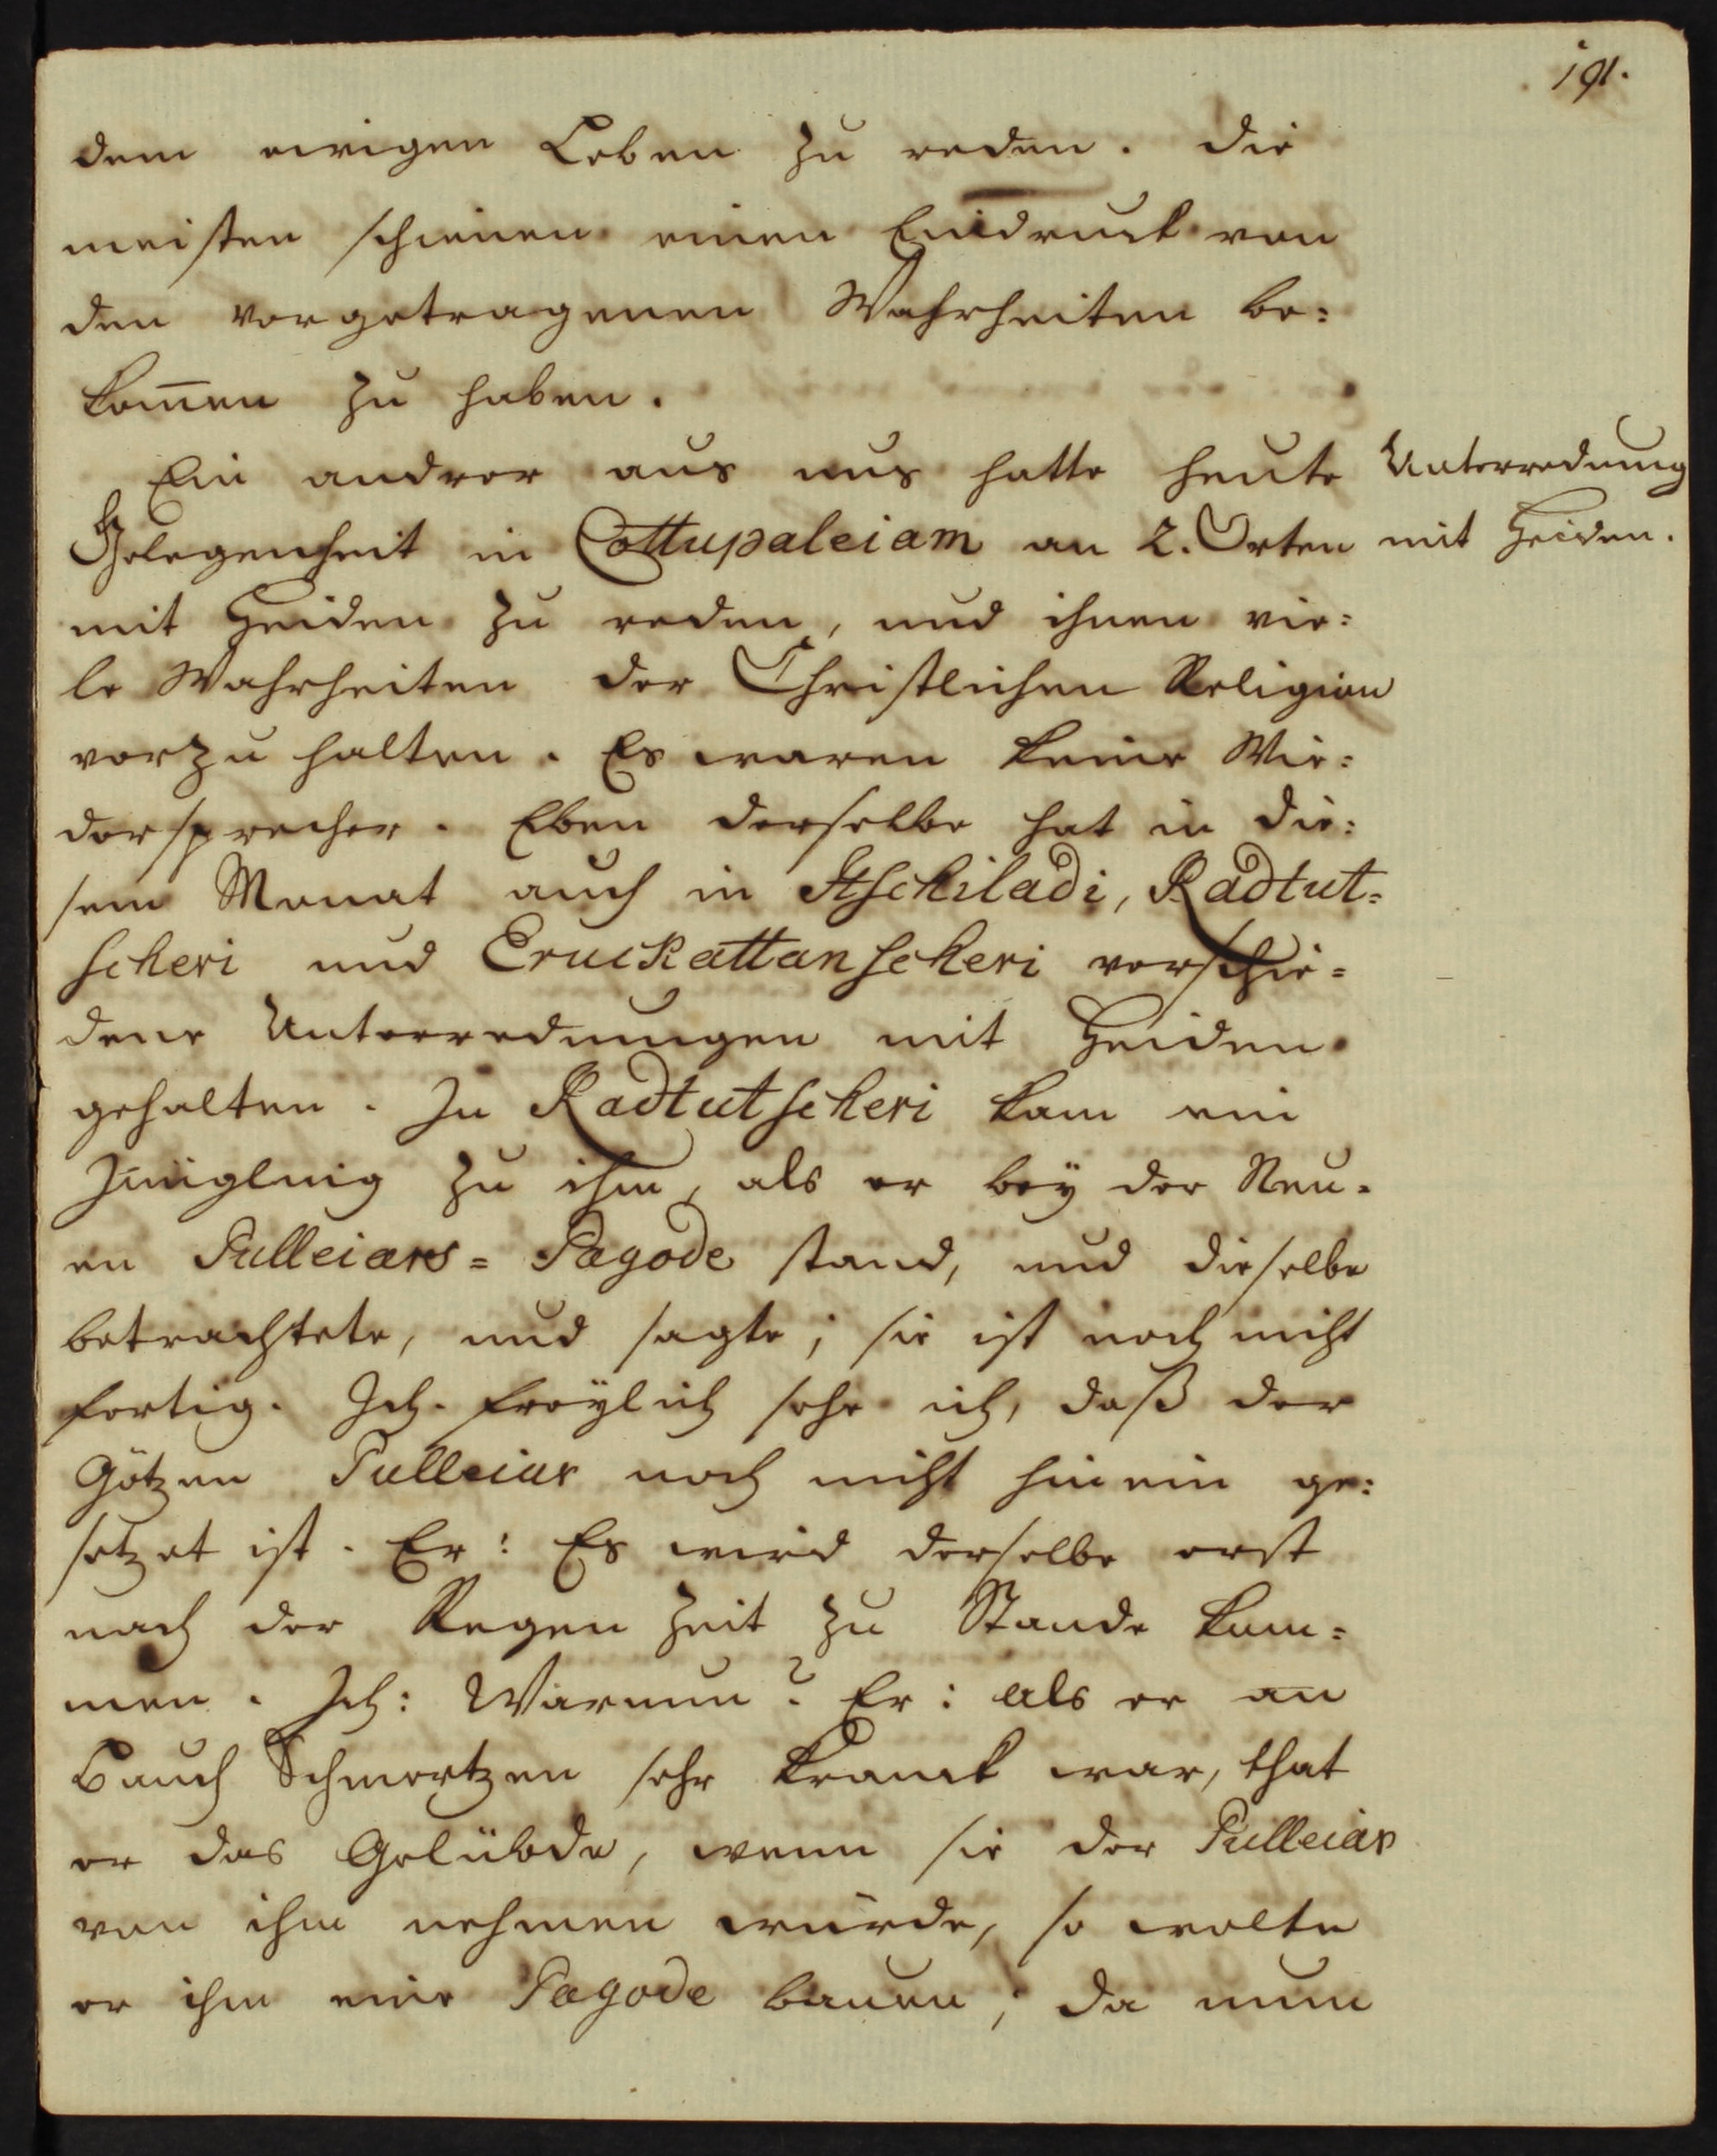 191.
dem ewigen Leben zu reden. Die
meisten schienen einen Eindruck von
den vorgetragenen Wahrheiten be=
kom̅en zu haben.
Ein andrer aus uns hatte heute
Gelegenheit in Cottupaleiam an 2. Orten
mit Heiden zu reden, und ihnen vie=
le Wahrheiten der Christlichen Religion
vorzu halten. Es waren keine Wie=
dersprecher. Eben derselbe hat in die=
sem Monat auch in Itschiladi, Radtut=
scheri und Eruckattanscheri verschie=
dene Unterredungen mit Heiden
gehalten. In Radtutscheri kam ein
Jüngling zu ihm, als er beÿ der Neu=
en Pulleiars=Pagode stand, und dieselbe
betrachtete, und sagte; sie ist noch nicht
fertig. Ich. Freÿlich sehe ich, daß der
Götzen Pulleiar noch nicht hinein ge=
setzet ist. Er: Es wird derselbe erst
nach der Regen Zeit zu Stande kom=
men. Ich: Warum? Er: Als er an
Bauch Schmertzen sehr kranck war, that
er das Gelübde, wenn sie der Pulleiar
von ihm nehmen würde, so wolte
er ihm eine Pagode bauen; da nun
Unterredung
mit Heiden.